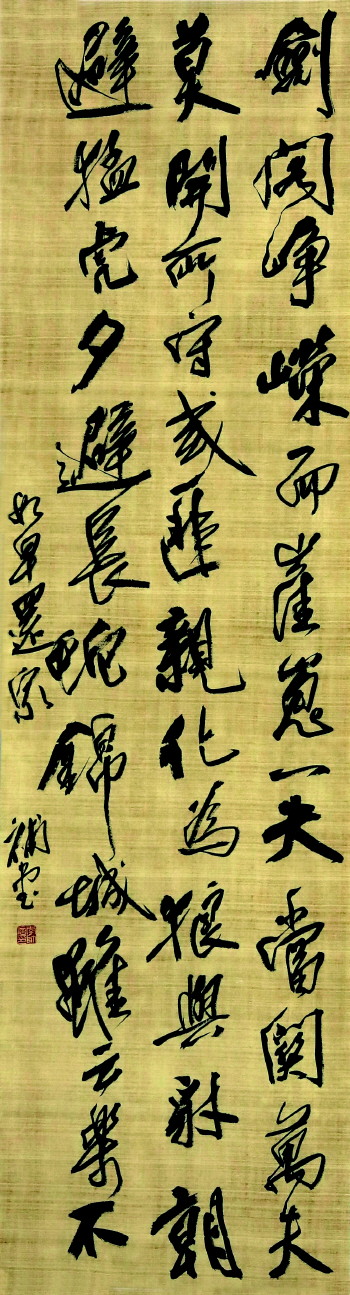 劍閣崢嶸而崔嵬一夫當關萬夫
莫開所守或匪親化為狼與豺朝
避猛虎夕避長蛇錦城雖云樂不
如早還家